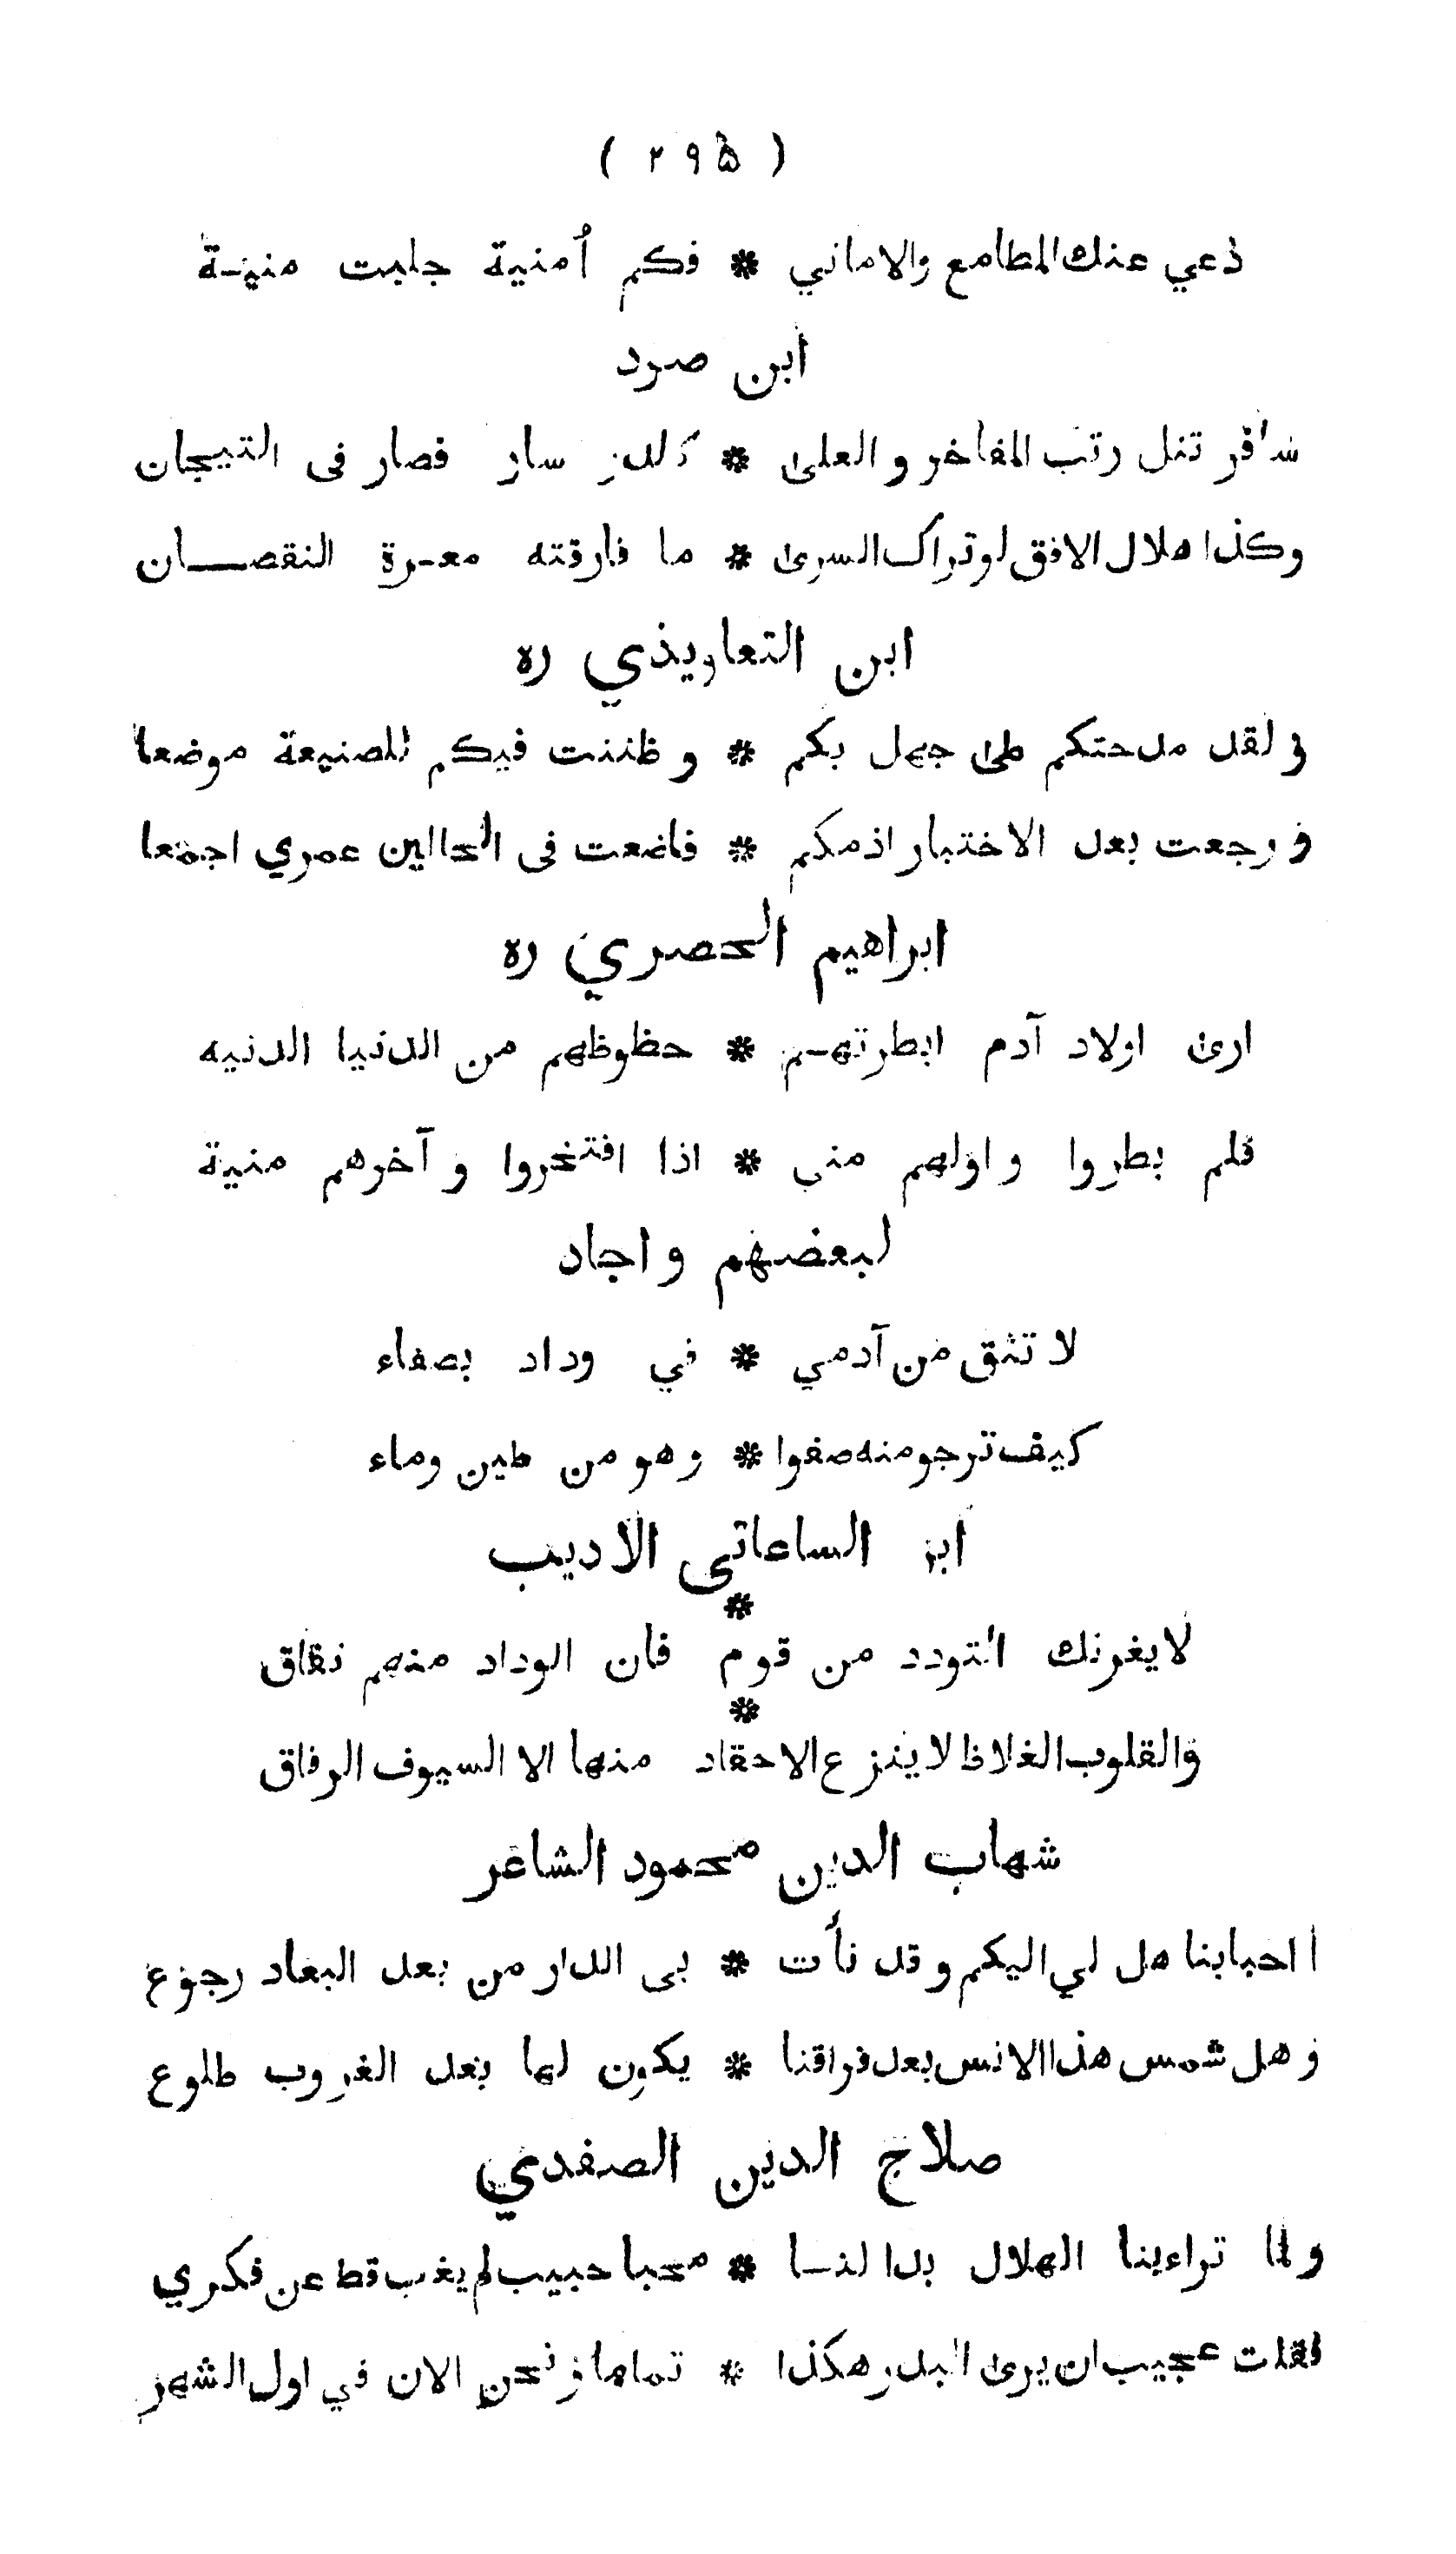 ( ٢٩۵ )
دعي عنك المطامع والاماني * فكم أمنية جلبت منية
ابن صرد
سافر تنل رتب المفاخر و العلى * كالدر سار فصار فى التيجان
وكذا هلال الافق لو ترك السرى * ما فارقته معرة النقصان
ابن التعاويذي ره
و لقد مدحتكم على جهل بكم * و ظننت فيكم للصنيعة موضعا
و رجعت بعد الاختبار اذمكم * فاضعت فى الحالين عمري اجمعا
ابراهيم الحصري ره
ارى اولاد آدم ابطرتهم * حظوظهم من الدنيا الدنيه
فلم بطروا و اولهم منى * اذا افتخروا و آخرهم منية
لبعضهم و اجاد
لا تثق من آدمي * في وداد بصفاء
كيف ترجو منه صفوا * وهو من طين وماء
ابن الساعاتى الاديب
لا يغرنك التودد من قوم * فان الوداد منهم نفاق
والقلوب الغلاظ لا ينزع الاحقاد * منها الا السيوف الرقاق
شهاب الدين محمود الشاعر
ا احبابنا هل لي اليكم و قد نأت * بى الدار من بعد البعاد رجوع
و هل شمس هذا الانس بعد فراقنا * يكون لها بعد الغروب طلوع
صلاح الدين الصفدي
و لما تراءينا الهلال بدا لنا * محيا حبيب لم يغب قط عن فكري
فقلت عجيب ان يرى البدر هكذا * تماما و نحن الان في اول الشهر